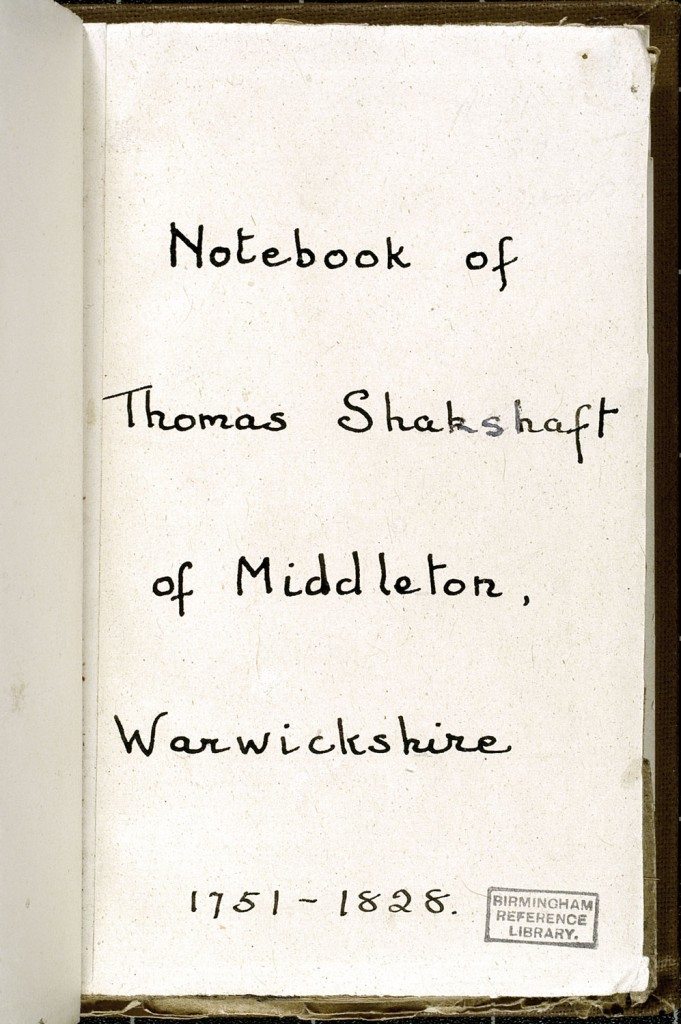 Notebook of
Thomas Shakshaft
of Middleton,
Warwickshire
1751-1828.
BIRMINGHAM
REFERENCE
LIBRARY.